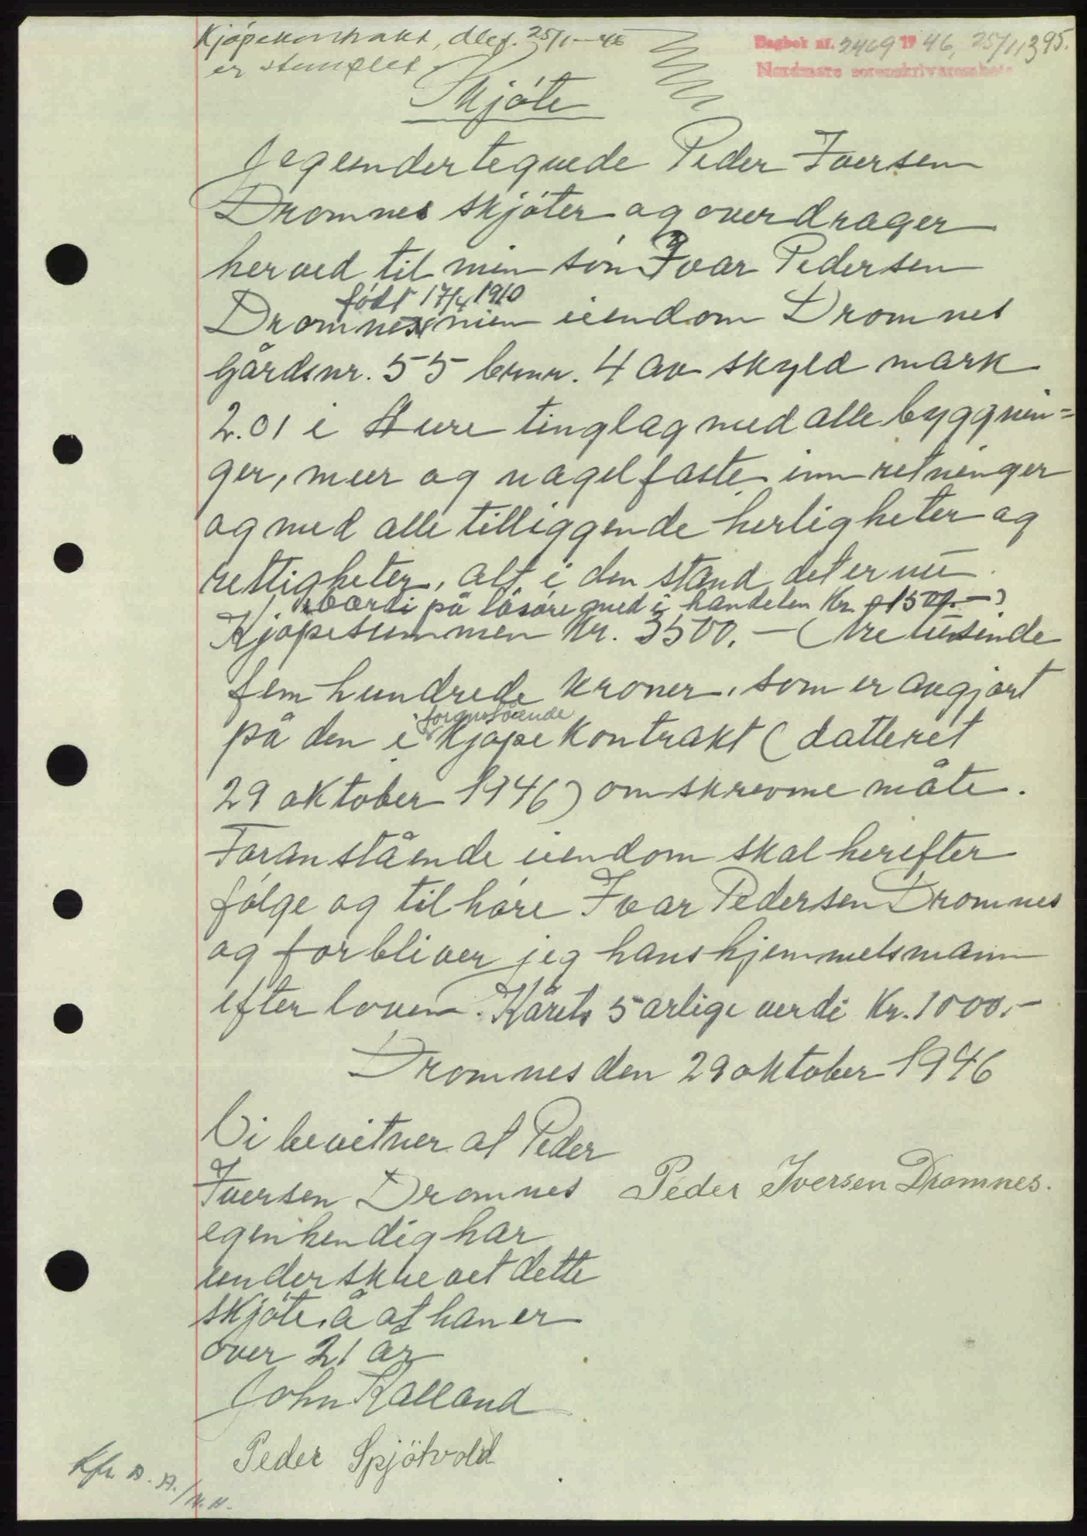 Kjøpekontrakt, dat. 25/1-46
er stemplet
Dagbok nr. 2469 1946, 25/11 395.
Nordmøre sorenskriverembete
Skjøte
Jeg undertegnede Peder Iversen
Dromnes skjøter og overdrager
herved til min søn Ivar Pedersen
født 17/4 1910
Dromnes min eiendom Dromnes
Gårdsnr. 55 brnr. 4 av skyld mark
2.01 i Aure tinglag med alle byggnin=
ger, muer og nagelfaste innretninger
og med alle tilliggende herligheter og
rettigheter, alt i den stand det er nu.
verdi på løsøre med i handelen Kr. 1500.-)
Kjøpesummen Kr. 3500.- (tre tusinde
fem hundrede kroner, som er avgjort
foranstående
på den i kjøpekontrakt (datteret
29 oktober 1946) omskrevne måte.
Foranstående eiendom skal herefter
følge og tilhøre Ivar Pedersen Dromnes
og forbliver jeg hans hjemmelsmann
efter loven. Kårets 5 årlige verdi Kr. 1000.-
Dromnes den 29 oktober 1946
Vi bevitner at Peder
Iversen Dromnes
Peder Iversen Dromnes.
egenhendig har
underskrevet dette
skjøte, å at han er
over 21 år
John Kalland
Peder Spjøtvold
Kfr. A. A.
/N.H.